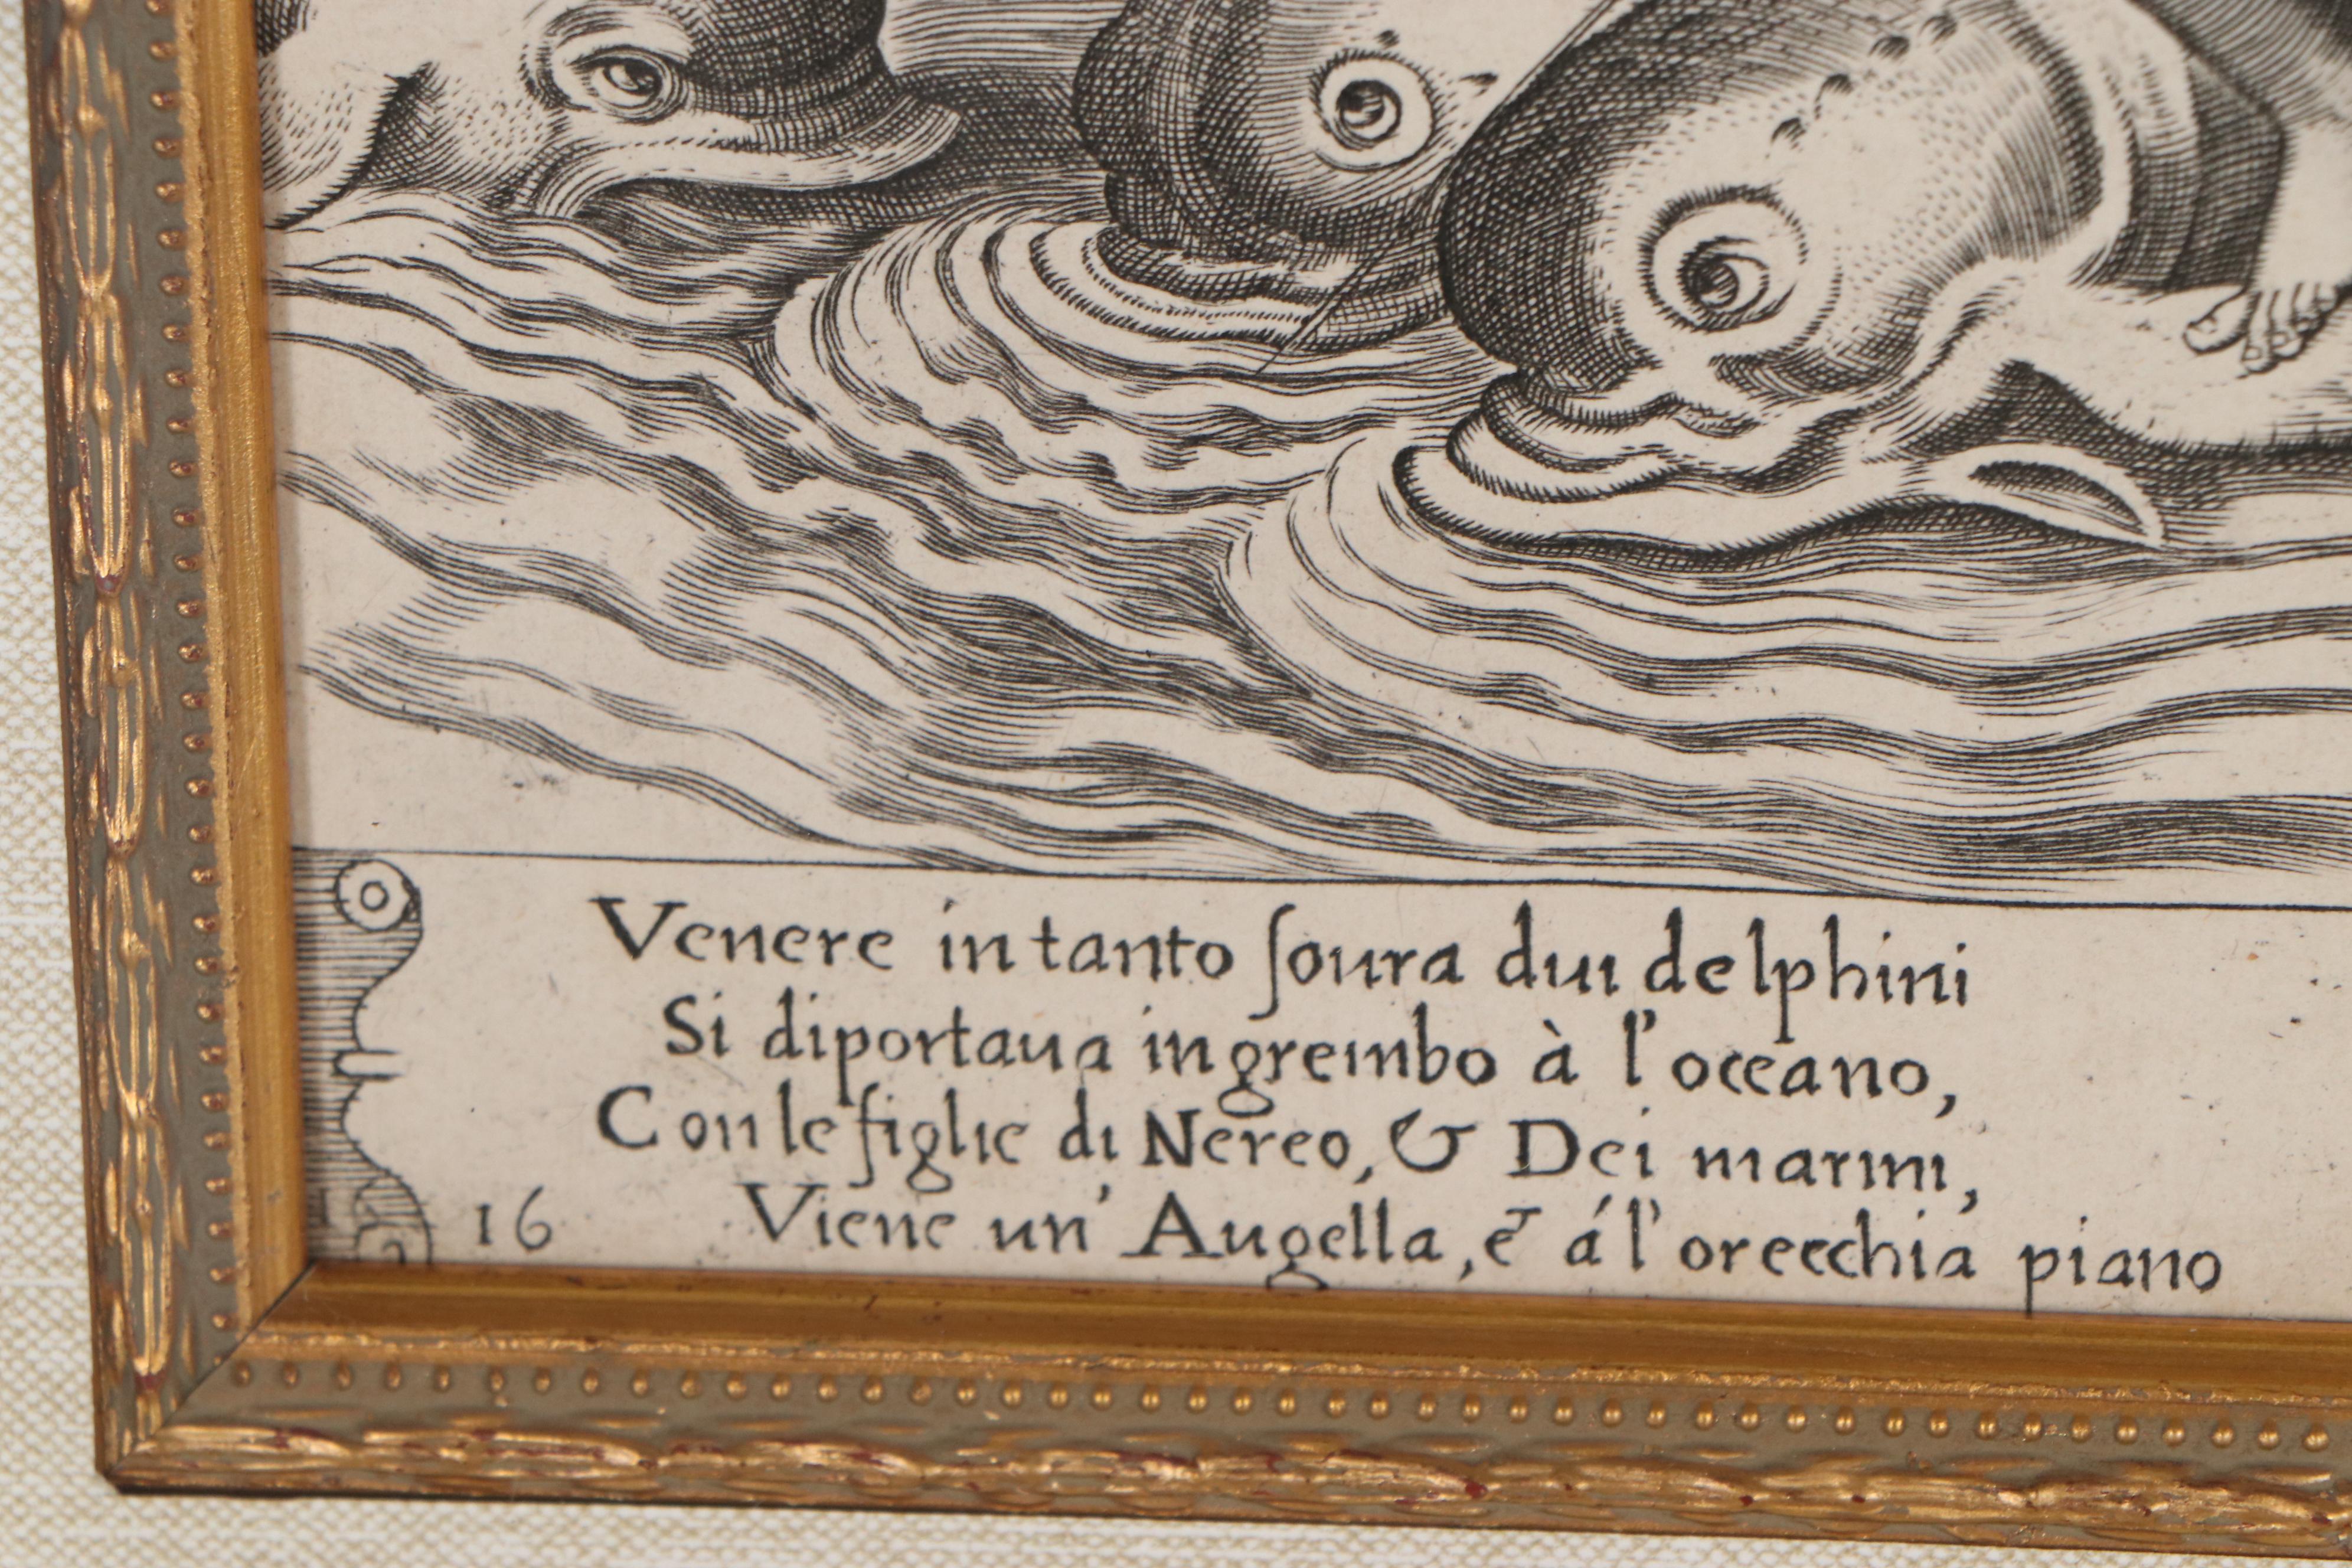 Venere in tanto ſoura dui delphini
Si diportaua in grembo à l'oceano,
Con le figlie di Nereo, & Dei marini,
16 Viene un' Augella, & á l'orecchia piano